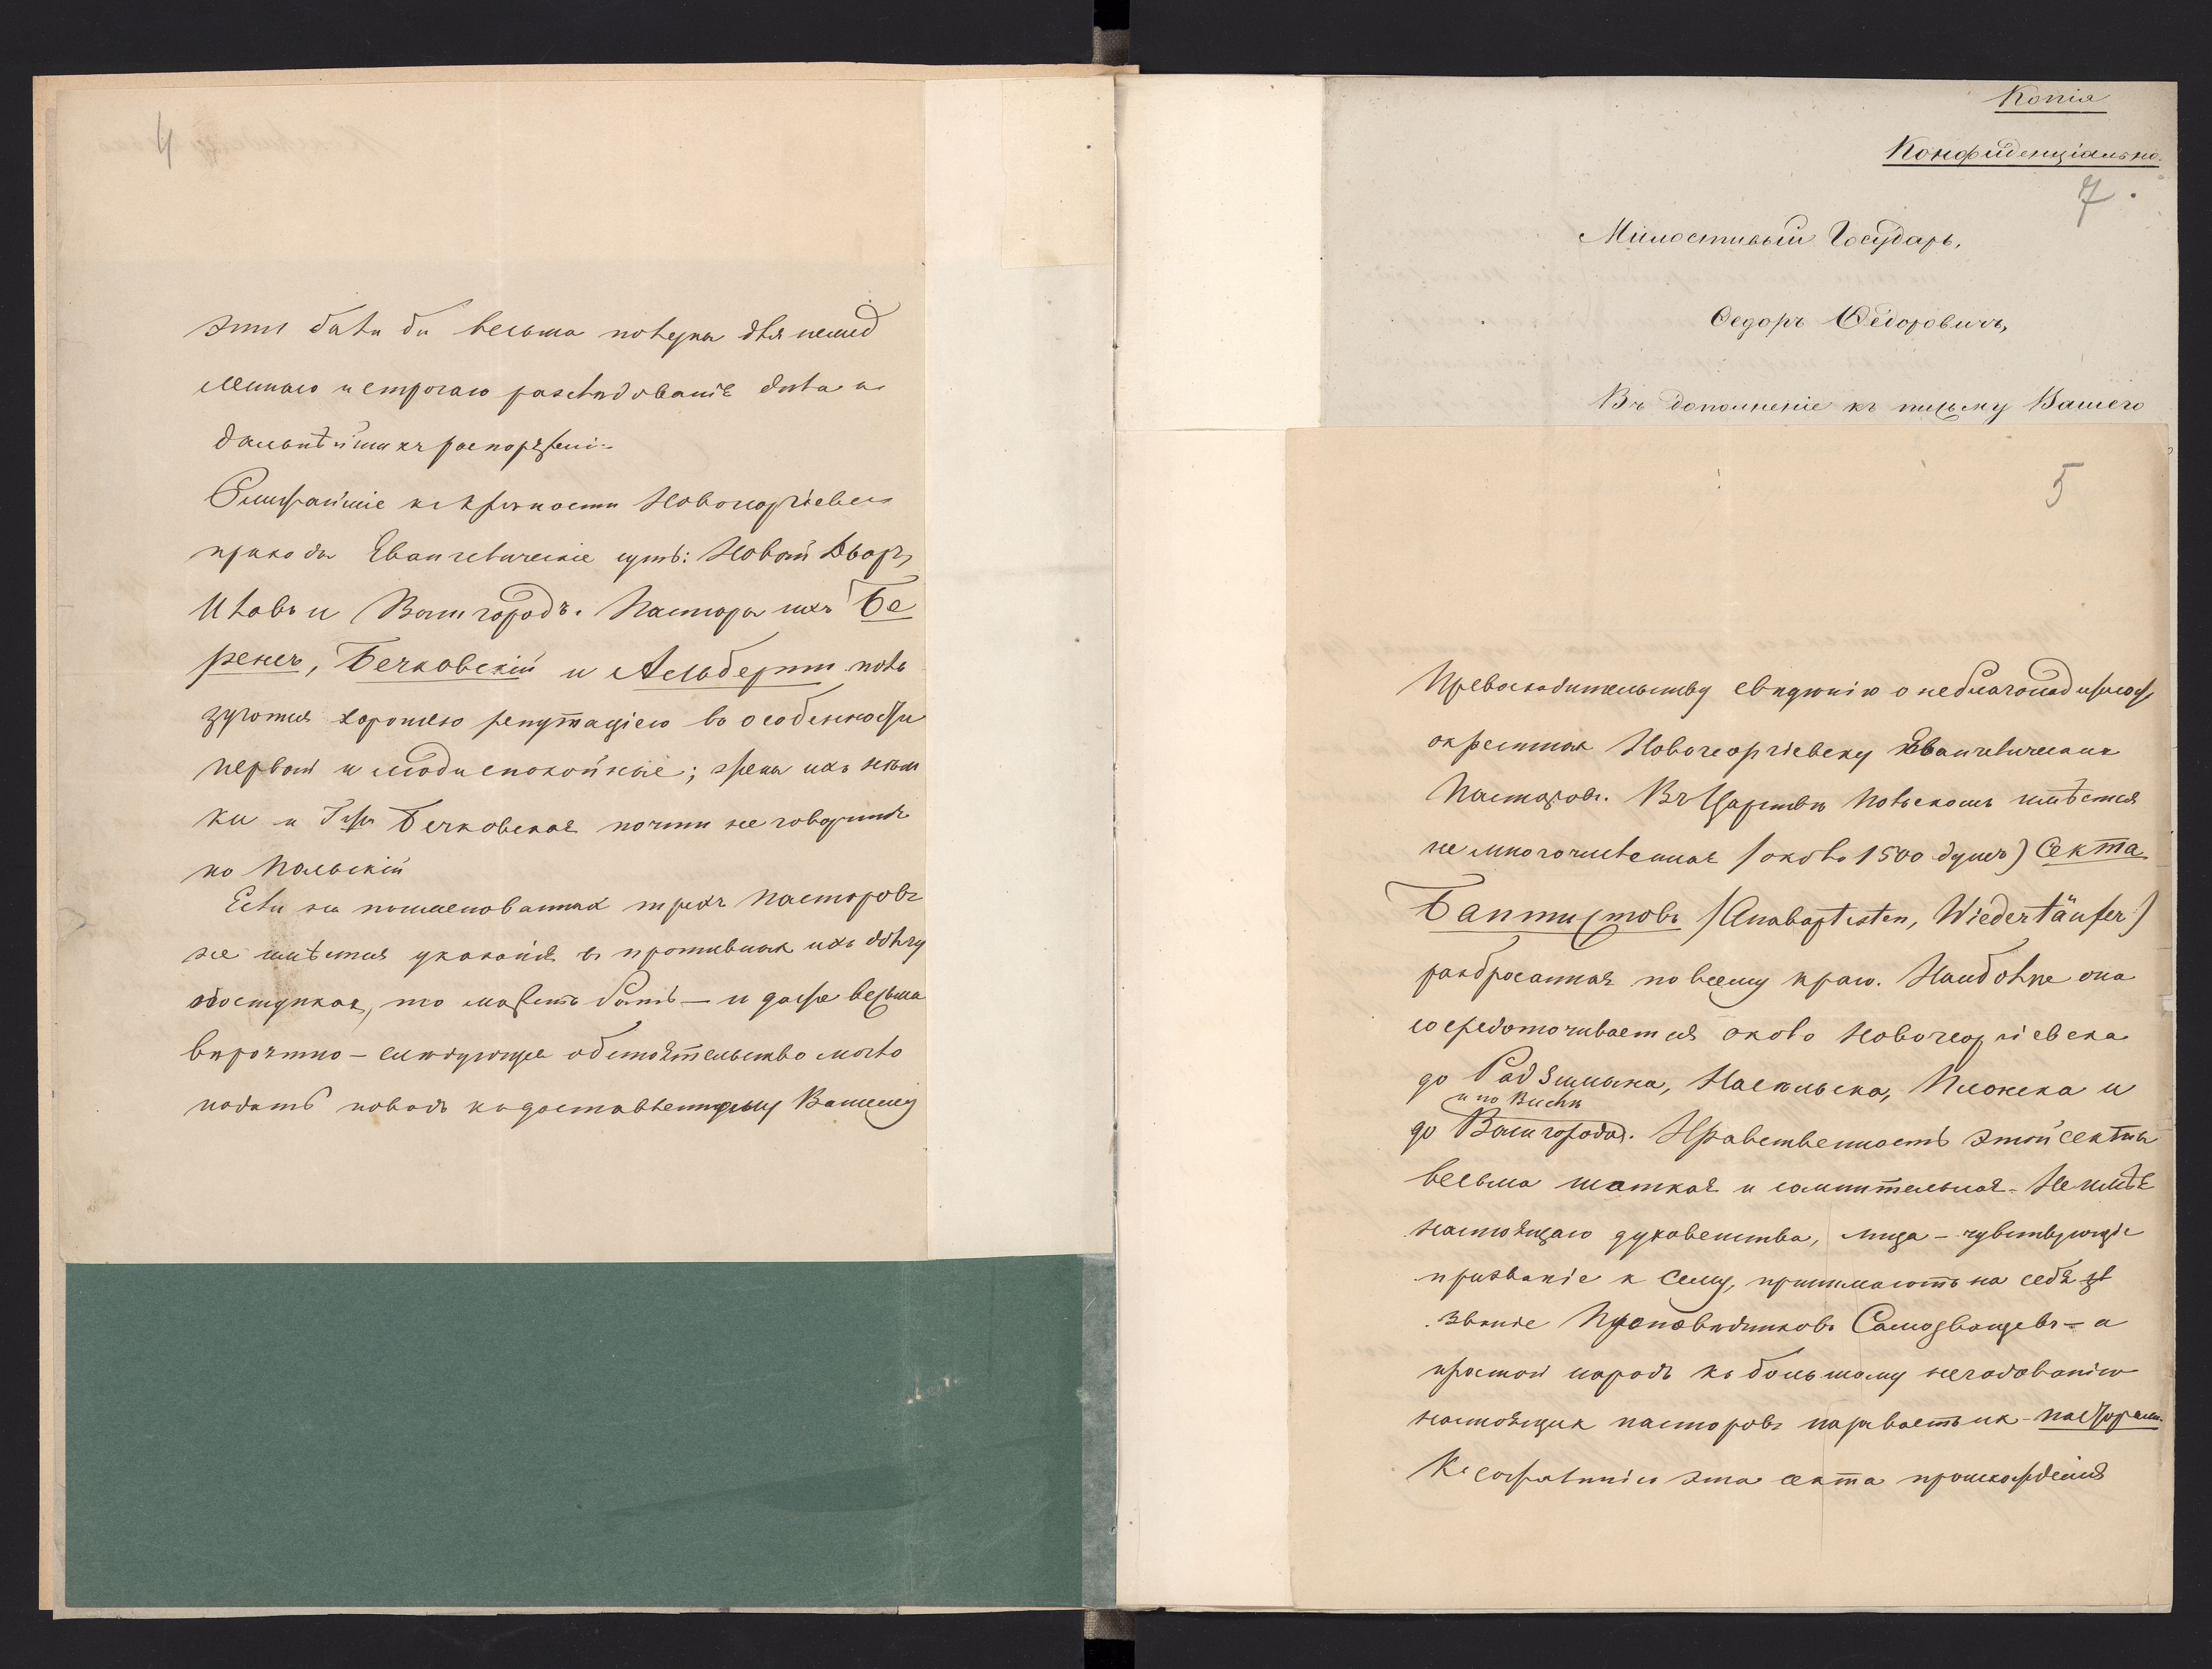 4
были бы весьма полезны для немед
леннаго и строгаго разследованія дѣла и
дальнѣйшихъ распоряженій
Ближайшіе къ крѣпости Новогеоргіевск
приходы Евангелическіе суть: Новый Дворъ,
Иловъ и Вышгородъ. Пасторы ихъ Бе
ренсъ, Бечковскій и Альберти поль
зуются хорошею репутаціею въ особенности
первый и люди спокойные; жены ихъ нѣм
ки и Г-жа Бечковская почти не говоритъ
по Польскій
Если на поименованныхъ трехъ пасторовъ
не имѣется указанія въ противныхъ ихъ долгу
поступкахъ, то можетъ быть — и даже весьма
вѣроятно — слѣдующее обстоятельство могло
подать поводъ къ доставленному Вашему
Копія
Конфиденціально.
7.
Милостивый Государь,
Ѳедоръ Ѳедоровичъ,
Въ дополненіе къ письму Вашего
5
Превосходительству свѣдѣнію о неблагонадежности
окрестныхъ Новогеоргіевску Евангелическихъ
Пасторовъ. Въ Царствѣ Польскомъ имѣется
не многочисленная (около 1500 душъ) Секта
Баптистовъ (Anabaptisten, Wiedertäufer)
разбросанная по всему краю. Наиболѣе она
сосредоточивается около Новогеоргіевска
до Радзимина, Насельска, Плонска и
и по Вислѣ
до Вышгорода. Нравственность этой секты
весьма шаткая и сомнительная. Не имѣя
настоящаго духовенства, лица — чувствующіе
призваніе к сему, принимаютъ на себя
званіе Проповѣдниковъ Самозванцевъ — а
простой народъ къ большому негодованію
настоящихъ пасторовъ называетъ их — пасторами.
Къ сожалѣнію эта секта происхожденія